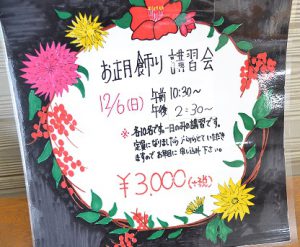 お正月飾り講習会
12/6(日) 午前 10:30〜
午後 2:30〜
※各10名です。一日のみの講習です。
定員になりましたら〆切らせていただき
ますので お早目に 申し込み下さい。
¥3,000(+税)